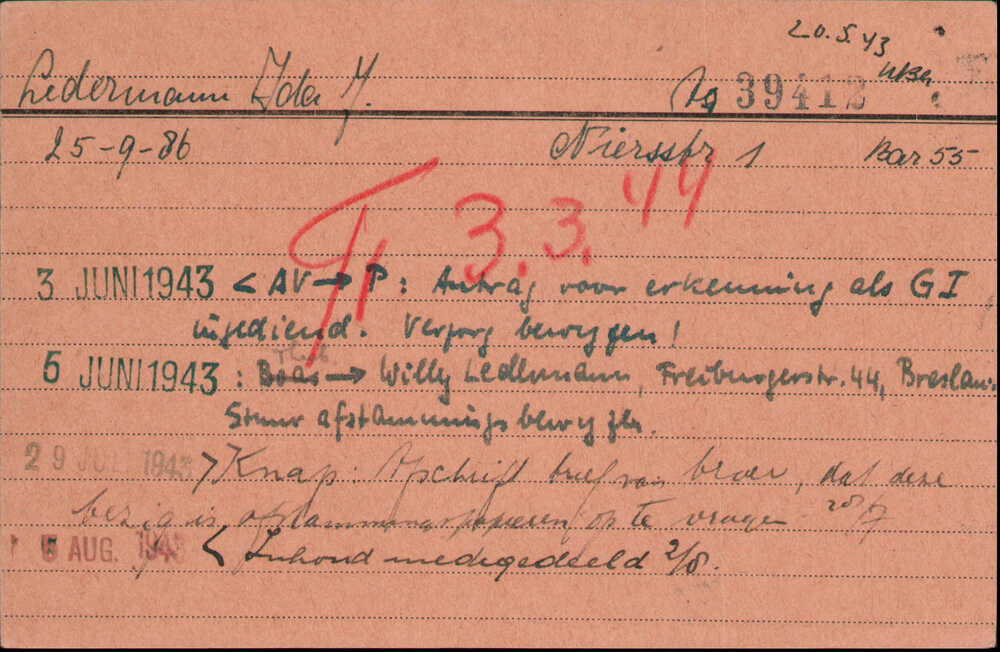 20.5.43
Ledermann Ida J. 39412
25-9-86 Niersstr 1 Bar 55
T/ 3.3.44
3 JUNI 1943 < AV → P: Antrag voor erkenning als GI
ingediend. Verzorg bewyzen!
5 JUNI 1943 : Boas → Willy Ledermann, Freiburgerstr. 44, Breslau:
Stuur afstammingsbewyzen.
29 JULI 1943 > Knap: Afschrift brief van broer, dat deze
bezig is, afstammingspapieren op te vragen 28/7
5 AUG. 1943 < Inhoud medegedeeld 2/8.